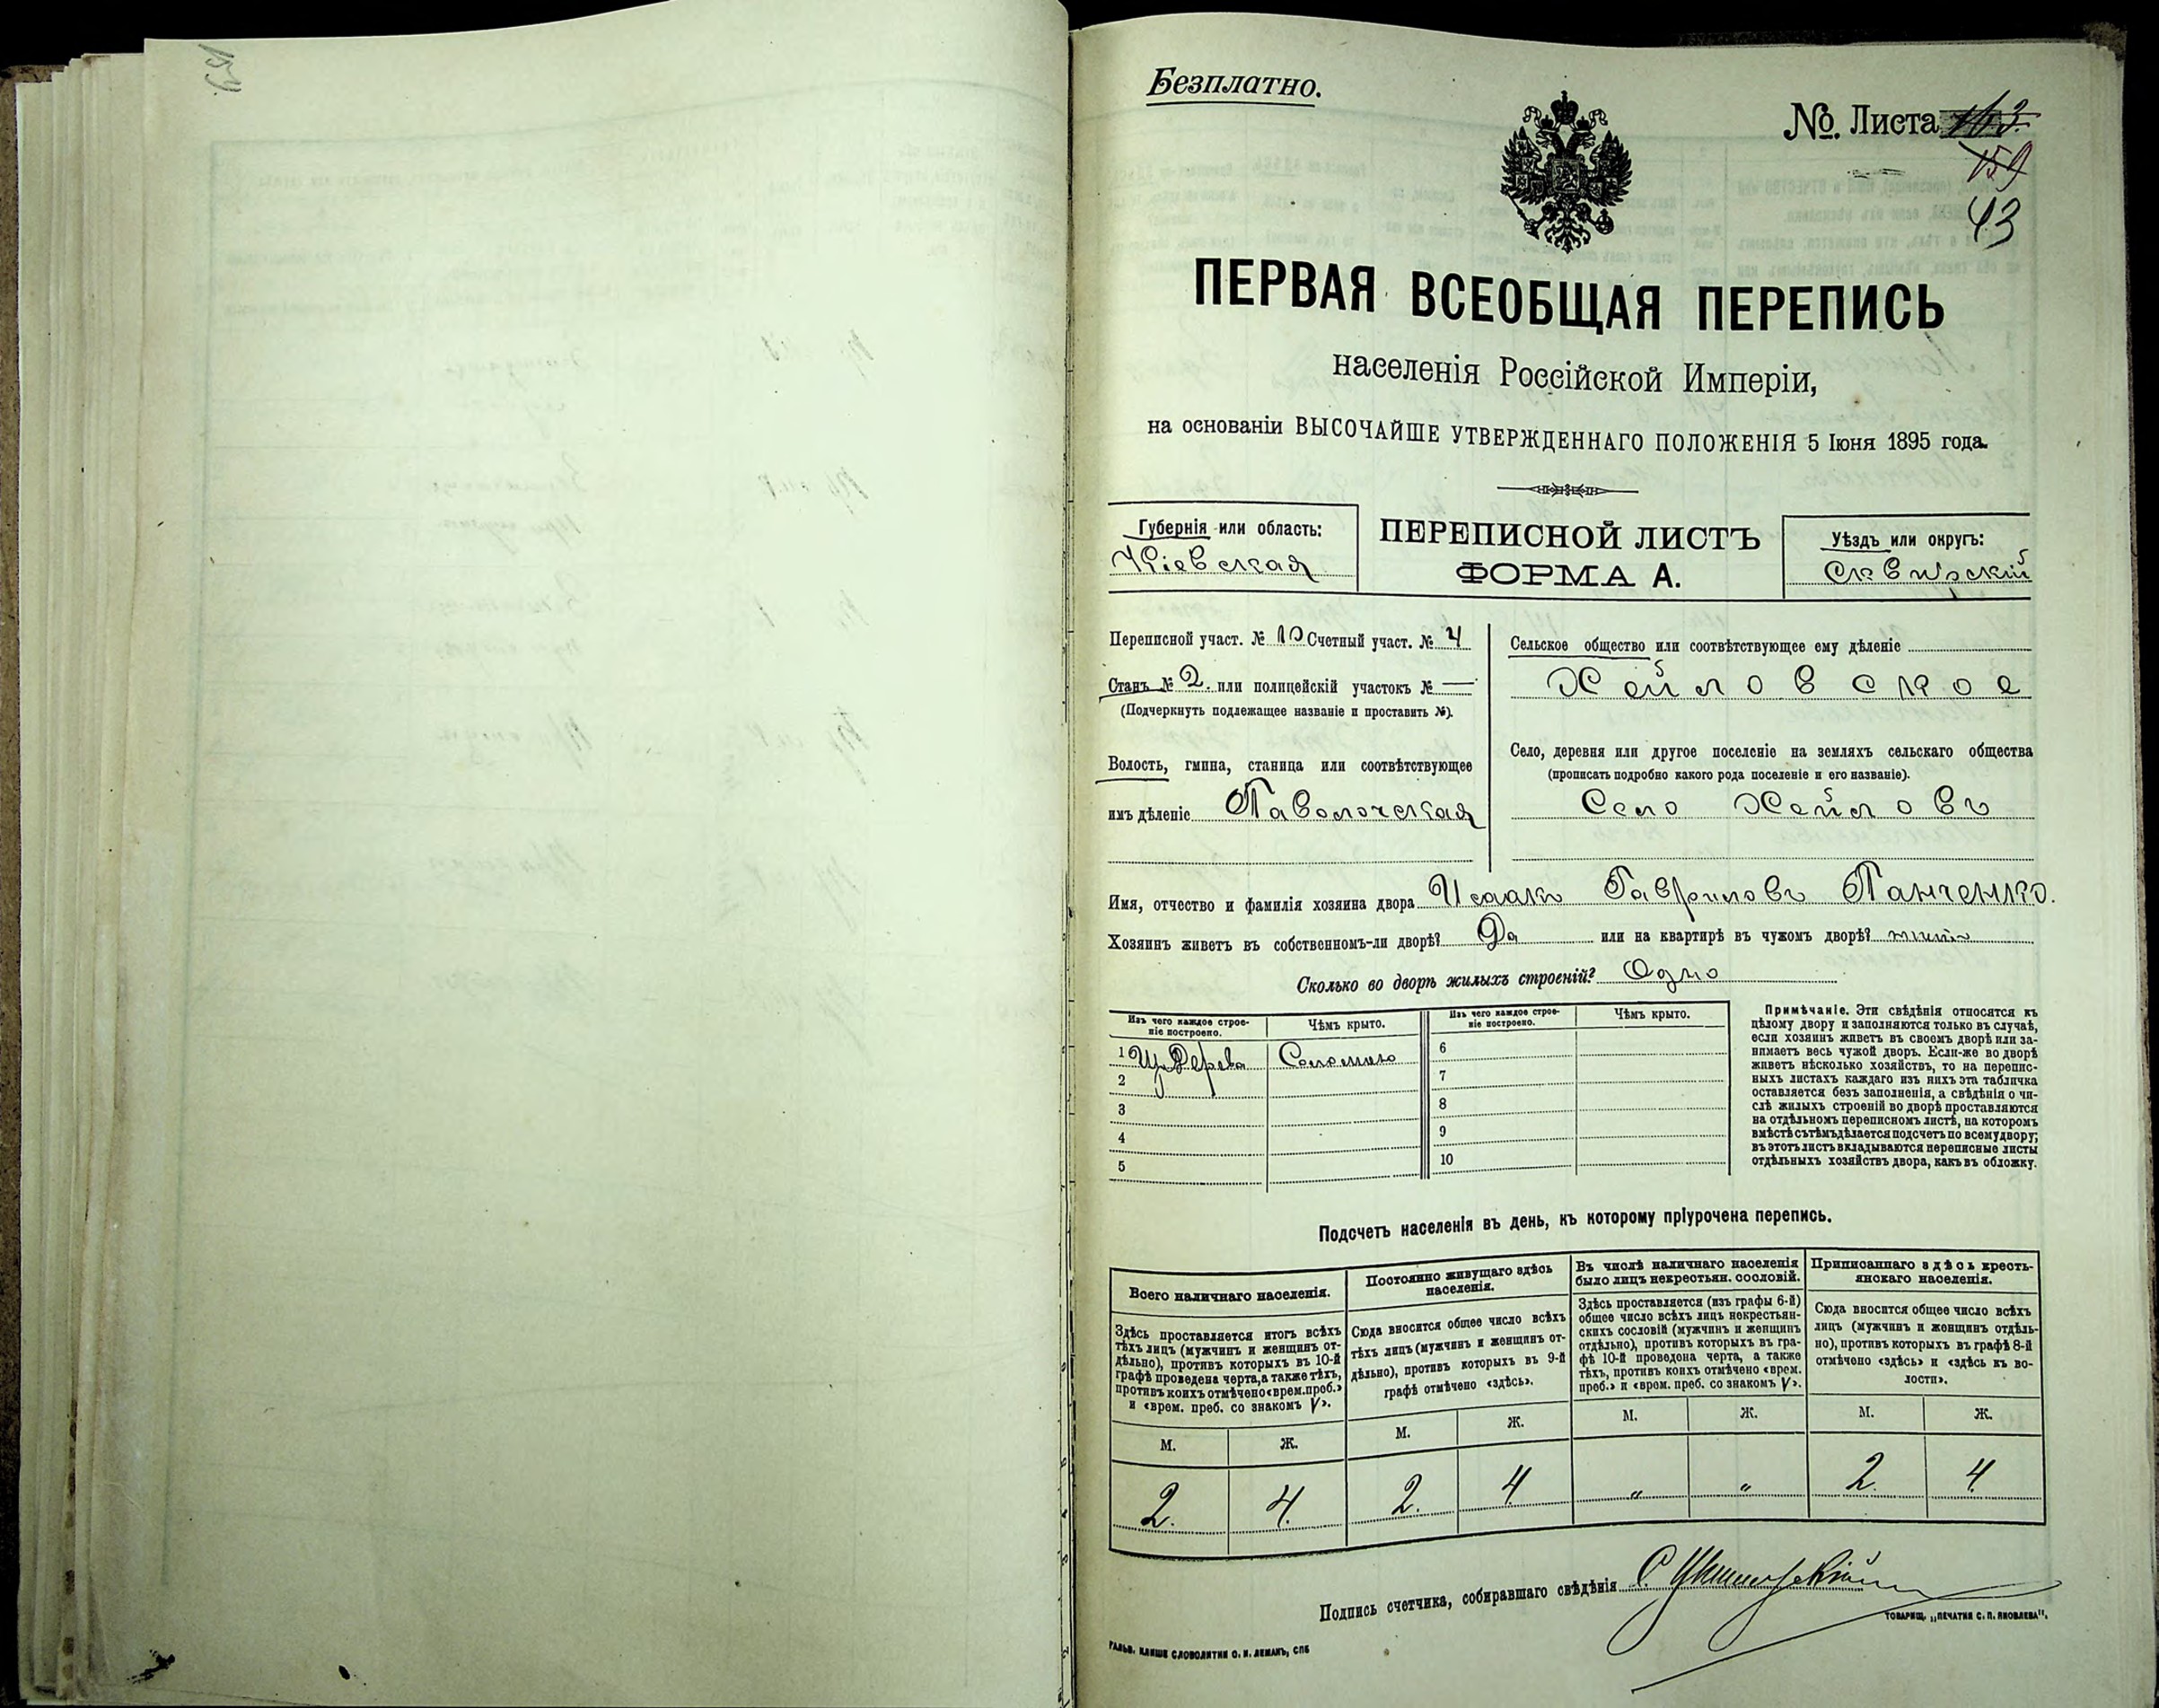 Безплатно.
№ Листа 163.
159
43
ПЕРВАЯ ВСЕОБЩАЯ ПЕРЕПИСЬ
населенія Россійской Имперіи,
на основаніи ВЫСОЧАЙШЕ УТВЕРЖДЕННАГО ПОЛОЖЕНІЯ 5 Іюня 1895 года.
Губернія или область:
Кіевская
ПЕРЕПИСНОЙ ЛИСТЪ
ФОРМА А.
Уѣздъ или округъ:
Сквирскій
Переписной участ. № 10 Счетный участ. № 4
Станъ № 2. или полицейскій участокъ № —
(Подчеркнуть подлежащее названіе и проставить №).
Волость, гмина, станица или соотвѣтствующее
имъ дѣленіе Паволочская
Сельское общество или соотвѣтствующее ему дѣленіе
Хейловское
Село, деревня или другое поселеніе на земляхъ сельскаго общества
(прописать подробно какого рода поселеніе и его названіе).
Село Хейловъ
Имя, отчество и фамилія хозяина двора Исаакъ Гавриловъ Панченко.
Хозяинъ живетъ въ собственномъ-ли дворѣ? Да или на квартирѣ въ чужомъ дворѣ?
Сколько во дворѣ жилыхъ строеній? Одно
Изъ чего каждое строе-
ніе построено.
Чѣмъ крыто.
Изъ чего каждое строе-
ніе построено.
Чѣмъ крыто.
1 Изъ Дерева Соломою
2
3
4
5
6
7
8
9
10
Примѣчаніе. Эти свѣдѣнія относятся къ
цѣлому двору и заполняются только въ случаѣ,
если хозяинъ живетъ въ своемъ дворѣ или за-
нимаетъ весь чужой дворъ. Если-же во дворѣ
живетъ нѣсколько хозяйствъ, то на перепис-
ныхъ листахъ каждаго изъ нихъ эта табличка
оставляется безъ заполненія, а свѣдѣнія о чи-
слѣ жилыхъ строеній во дворѣ проставляются
на отдѣльномъ переписномъ листѣ, на которомъ
вмѣстѣ съ тѣмъ дѣлается подсчетъ по всему двору;
въ этотъ листъ вкладываются переписные листы
отдѣльныхъ хозяйствъ двора, какъ въ обложку.
Подсчетъ населенія въ день, къ которому пріурочена перепись.
Всего наличнаго населенія.
Здѣсь проставляется итогъ всѣхъ
тѣхъ лицъ (мужчинъ и женщинъ от-
дѣльно), противъ которыхъ въ 10-й
графѣ проведена черта, а также тѣхъ,
противъ коихъ отмѣчено «врем. преб.»
и «врем. преб. со знакомъ V».
М. Ж.
2. 4.
Постоянно живущаго здѣсь
населенія.
Сюда вносится общее число всѣхъ
тѣхъ лицъ (мужчинъ и женщинъ от-
дѣльно), противъ которыхъ въ 9-й
графѣ отмѣчено «здѣсь».
М. Ж.
2. 4
Въ числѣ наличнаго населенія
было лицъ некрестьян. сословій.
Здѣсь проставляется (изъ графы 6-й)
общее число всѣхъ лицъ некрестьян-
скихъ сословій (мужчинъ и женщинъ
отдѣльно), противъ которыхъ въ гра-
фѣ 10-й проведена черта, а также
тѣхъ, противъ коихъ отмѣчено «врем.
преб.» и «врем. преб. со знакомъ V».
М. Ж.
" "
Приписаннаго здѣсь кресть-
янскаго населенія.
Сюда вносится общее число всѣхъ
лицъ (мужчинъ и женщинъ отдѣль-
но), противъ которыхъ въ графѣ 8-й
отмѣчено «здѣсь» и «здѣсь къ во-
лости».
М. Ж.
2. 4.
Подпись счетчика, собиравшаго свѣдѣнія
ГАЛЬВ. КЛИШЕ СЛОВОЛИТНИ О. И. ЛЕМАНЪ, СПБ
ТОВАРИЩ. „ПЕЧАТНЯ С. П. ЯКОВЛЕВА".